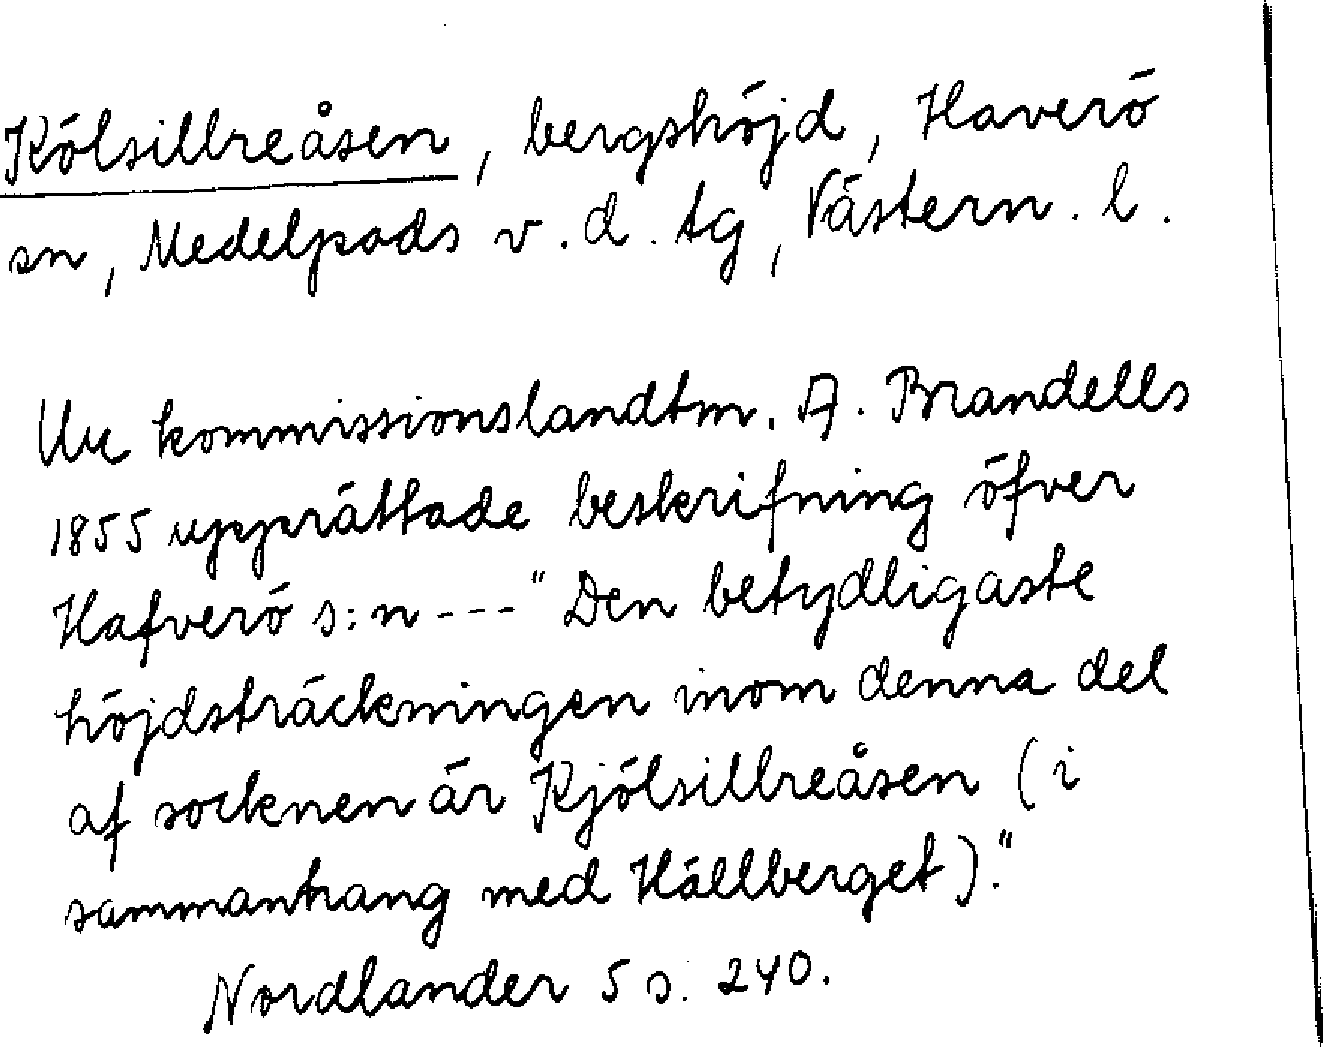 Kölsillreåsen, bergshöjd, Haverö
sn, Medelpads v. d. tg, Västern. l.
Ur kommissionslandtm. A. Brandells
1855 upprättade beskrifning öfver
Hafverö s:n --- "Den betydligaste
höjdsträckningen inom denna del
af socknen är Kjölsillreåsen (i
sammanhang med Hällberget)."
Nordlander 5 s. 240.